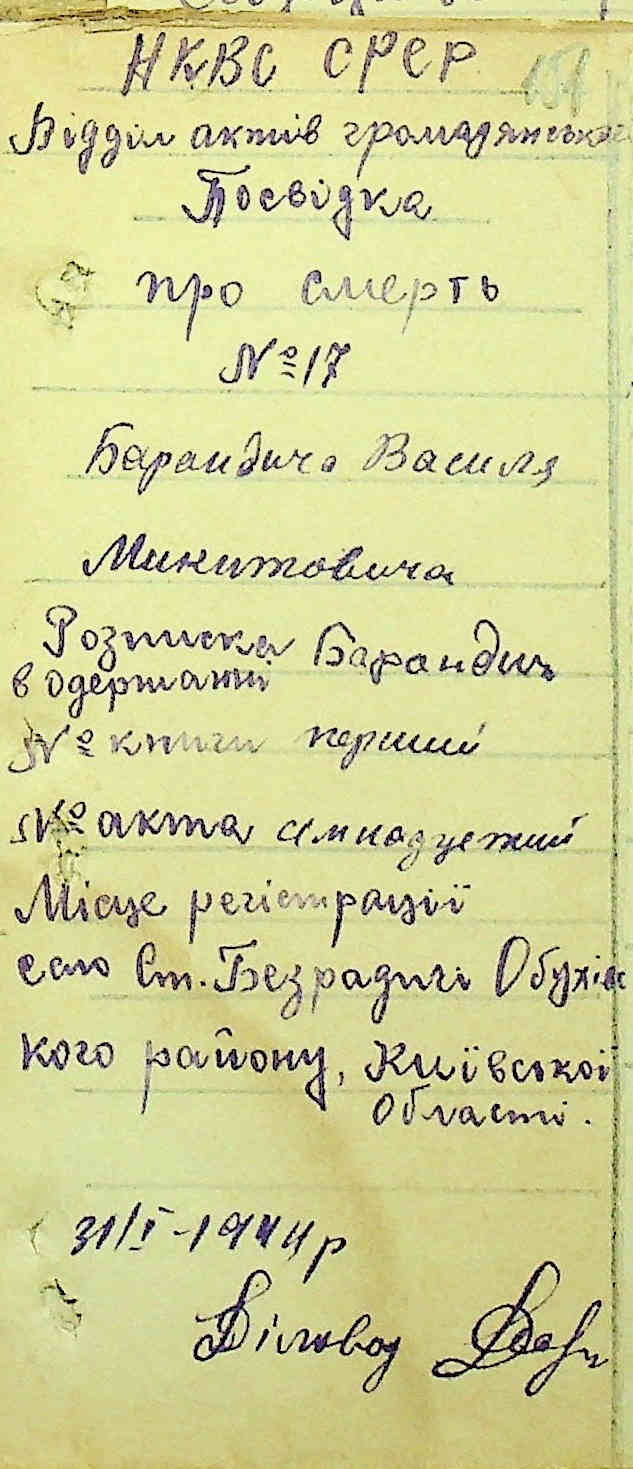 НКВС СРСР 151
Відділ актів громадянськ
Посвідка
про смерть
№17
Барандича Василя
Микитовича
Розписка Барандич
в одержанні
№ книги перший
№ акта сімнадцятий
Місце регістрації
село Ст. Безрадичі Обухівс
кого району, Київської
Області.
31/I-1944р
Діловод